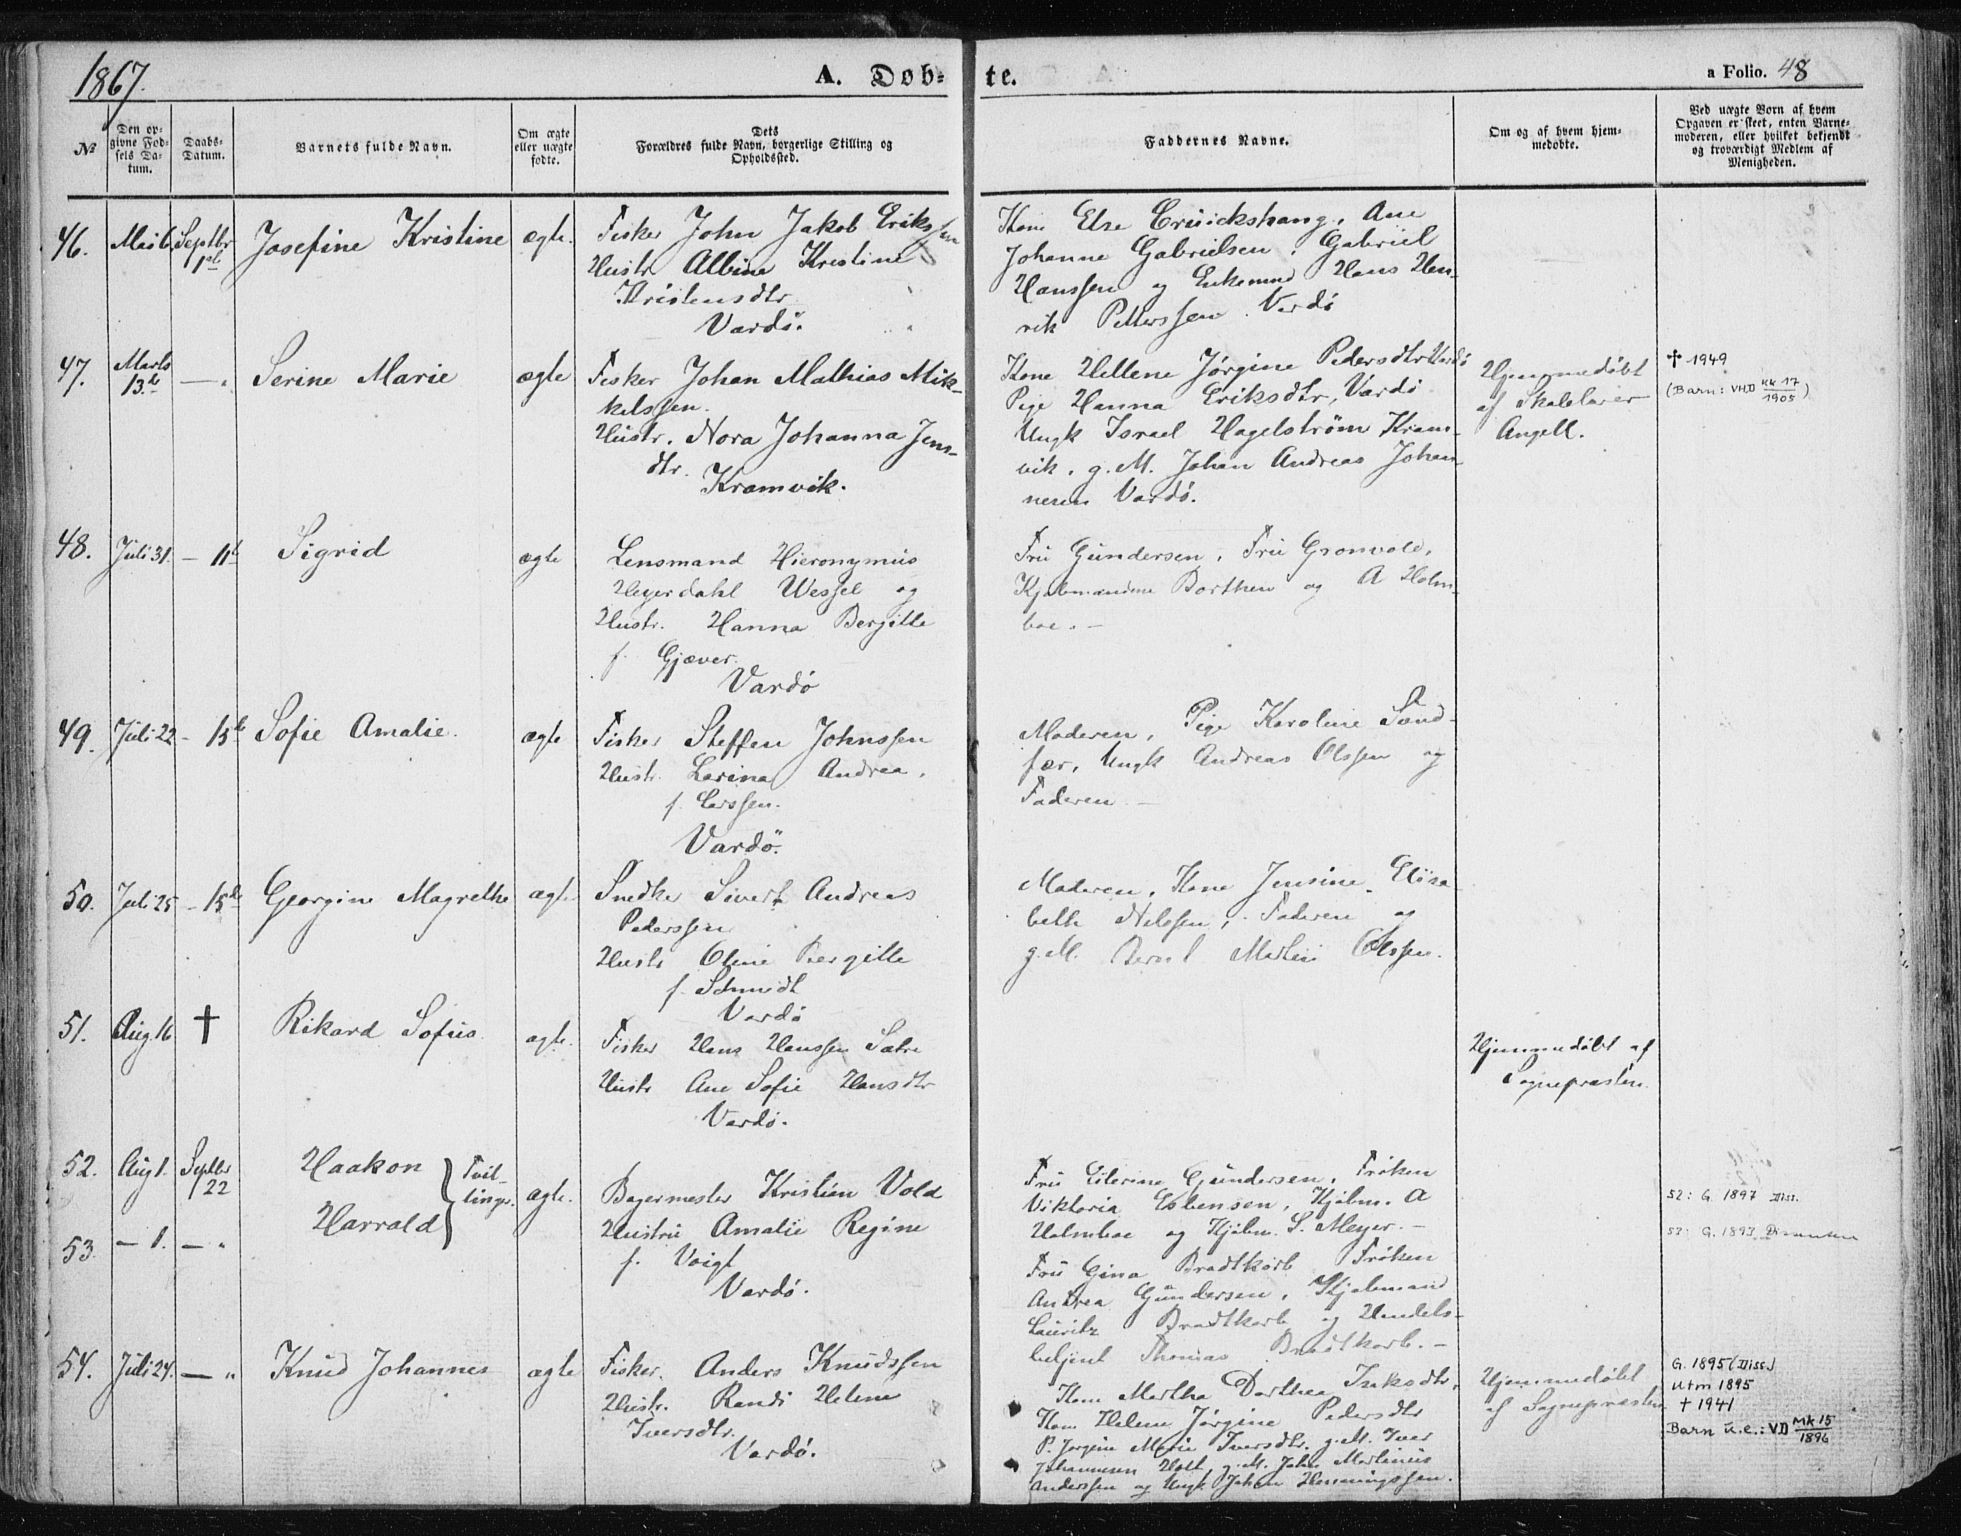 1867.
A. Døb-
te.
a Folio. 48
No
Den op-
givne Fød-
sels Da-
tum.
Daabs-
Datum.
Barnets fulde Navn.
Om ægte
eller uægte
fødte.
Dets
Forældres fulde Navn, borgerlige Stilling og
Opholdssted.
Faddernes Navne.
Om og af hvem hjem-
medøbte.
Ved uægte Børn af hvem
Opgaven er skeet, enten Barne-
moderen, eller hvilket bekjendt
og troværdigt Medlem af
Menigheden.
46.
Mai 6.
Septbr
1ste
Josefine Kristine
ægte.
Fisker John Jakob Erikssen
Hustr. Albine Kristine
Kristensdtr
Vardö.
Kone Else Cruickshang, Ane
Johanne Gabrielsen, Gabriel
Hanssen og Enkemnd Hans Hen-
rik Petterssen Vardö
47.
Marts
13de
— "
Serine Marie
ægte
Fisker Johan Mathias Mik-
kelssen.
Hustr. Nora Johanna Jens-
dtr.
Kramvik.
Kone Hellene Jørgine Pedersdtr Vardö
Pige Hanna Eriksdtr, Vardö
Ungk Israel Hagelstrøm Kram-
vik. g.M. Johan Andreas Johan-
nesen Vardö.
Hjemmedøbt
af Skolelærer
Angell.
✝ 1949
(Barn: VHD kk 17
1905)
48.
Juli 31.
— 11te
Sigrid
ægte
Lensmand Hieronymus
Heyerdahl Wessel og
Hustr. Hanna Bergitte
f. Gjæver.
Vardö
Fru Gundersen, Fru Gronvold,
Kjøbmændene Borthen og A Holm-
boe. —
49.
Juli 22
— 15de
Sofie Amalie.
ægte
Fisker Steffen Johnssen
Hustr. Larina Andrea,
f. Larssen.
Vardö.
Moderen, Pige Karoline Sand-
fær, Ungk Andreas Olssen og
Faderen —
50.
Juli 25
— 15de
Georgine Magrethe
ægte
Snedker Sivert Andreas
Pederssen
Hustr Oline Bergitte
f. Schmidt
Vardö
Moderen, Kone Jensine Elisa-
beth Nilssen, Faderen og
g.M. Bernt Martin Olssen.
51.
Aug. 16
✝
Rikard Sofus
ægte.
Fisker Hans Hanssen Sætre
Hustr Ane Sofie Hansdtr
Vardö.
Hjemmedøbt af
Sognepræsten.
52.
Aug 1.
Septbr
22
Haakon
Tvil-
linger.
ægte.
Bagermester Kristian Vold
Hustru Amalie Regine
f. Voigt
Vardö.
Fru Elerine Gundersen, Frøken
Viktoria Esbensen, Kjøbm. A
Holmboe og Kjøbm. S. Meyer. —
52: G. 1897 Diss.
53
— 1.
— "
Harrald
Fru Gina Brodtkorb Frøken
Andrea Gundersen, Kjøbmand
Lauritz Brodtkorb og Handels-
betjent Thomas Brodtkorb. —
53: G. 1893 Dissenter
54.
Juli 24.
— "
Knud Johannes
ægte
Fisker. Anders Knudssen
Hustr. Randi Helene
Iversdtr.
Vardö.
Kone Martha Dorthea Inksdtr,
Kone Helene Jørgine Pedersdtr
P. Jorgine Marie Iversdtr. g.M. Iver
Johannesen Holt, g.M. John Martinius
Anderssen og Ungk Johan Henningssen.
Hjemmedøbt
af Sognepræsten
G. 1895 (Diss.)
Utm 1895
✝ 1941
Barn u.e.: VD Mk 15
1896